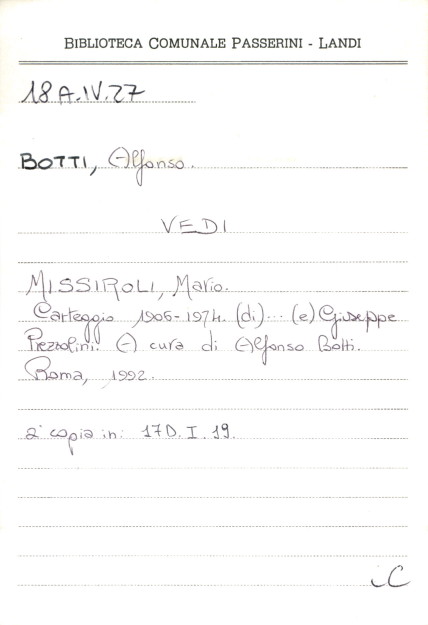 BIBLIOTECA COMUNALE PASSERINI - LANDI
18 A.IV.27
BOTTI, Alfonso.
VEDI
MISSIROLI, Mario.
Carteggio 1906-1974. (di)... (e) Giuseppe
Prezzolini. A cura di Alfonso Botti.
Roma, 1992.
2ª copia in: 17D. I. 19.